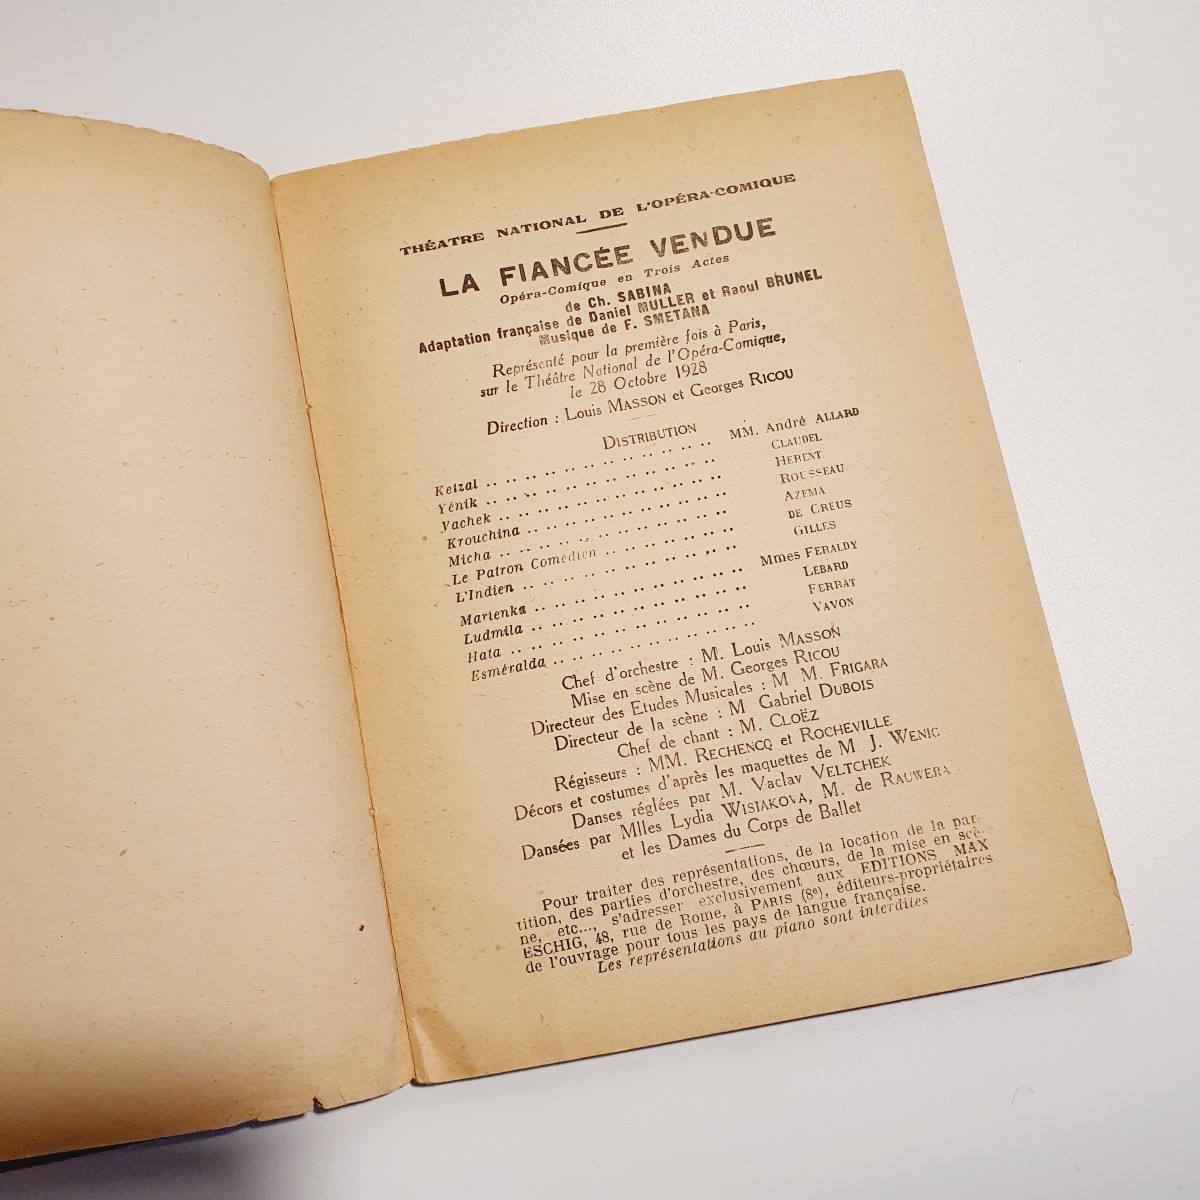 THÉATRE NATIONAL DE L'OPÉRA-COMIQUE
LA FIANCÉE VENDUE
Opéra-Comique en Trois Actes
de Ch. SABINA
Adaptation française de Daniel MULLER et Raoul BRUNEL
Musique de F. SMETANA
Représenté pour la première fois à Paris,
sur le Théâtre National de l'Opéra-Comique,
le 28 Octobre 1928
Direction : Louis MASSON et Georges RICOU
DISTRIBUTION
Ketzal .. .. .. .. .. .. .. .. .. .. .. .. MM. André ALLARD
Yénik .. .. .. .. .. .. .. .. .. .. .. .. CLAUDEL
Vachek .. .. .. .. .. .. .. .. .. .. .. .. HERENT
Krouchina .. .. .. .. .. .. .. .. .. .. ROUSSEAU
Micha .. .. .. .. .. .. .. .. .. .. .. .. AZEMA
Le Patron Comédien .. .. .. .. .. .. .. DE CREUS
L'Indien .. .. .. .. .. .. .. .. .. .. .. GILLES
Marienka .. .. .. .. .. .. .. .. .. .. .. Mmes FERALDY
Ludmila .. .. .. .. .. .. .. .. .. .. .. LEBARD
Hata .. .. .. .. .. .. .. .. .. .. .. .. FERRAT
Esméralda .. .. .. .. .. .. .. .. .. .. VAVON
Chef d'orchestre : M. Louis MASSON
Mise en scène de M. Georges RICOU
Directeur des Etudes Musicales : M. M. FRIGARA
Directeur de la scène : M Gabriel DUBOIS
Chef de chant : M. CLOËZ
Régisseurs : MM. RECHENCQ et ROCHEVILLE
Décors et costumes d'après les maquettes de M J. WENIG
Danses réglées par M. Vaclav VELTCHEK
Dansées par Mlles Lydia WISIAKOVA, M. de RAUWERA
et les Dames du Corps de Ballet
Pour traiter des représentations, de la location de la par-
tition, des parties d'orchestre, des chœurs, de la mise en scè-
ne, etc..., s'adresser exclusivement aux EDITIONS MAX
ESCHIG, 48, rue de Rome, à PARIS (8e), éditeurs-propriétaires
de l'ouvrage pour tous les pays de langue française.
Les représentations au piano sont interdites